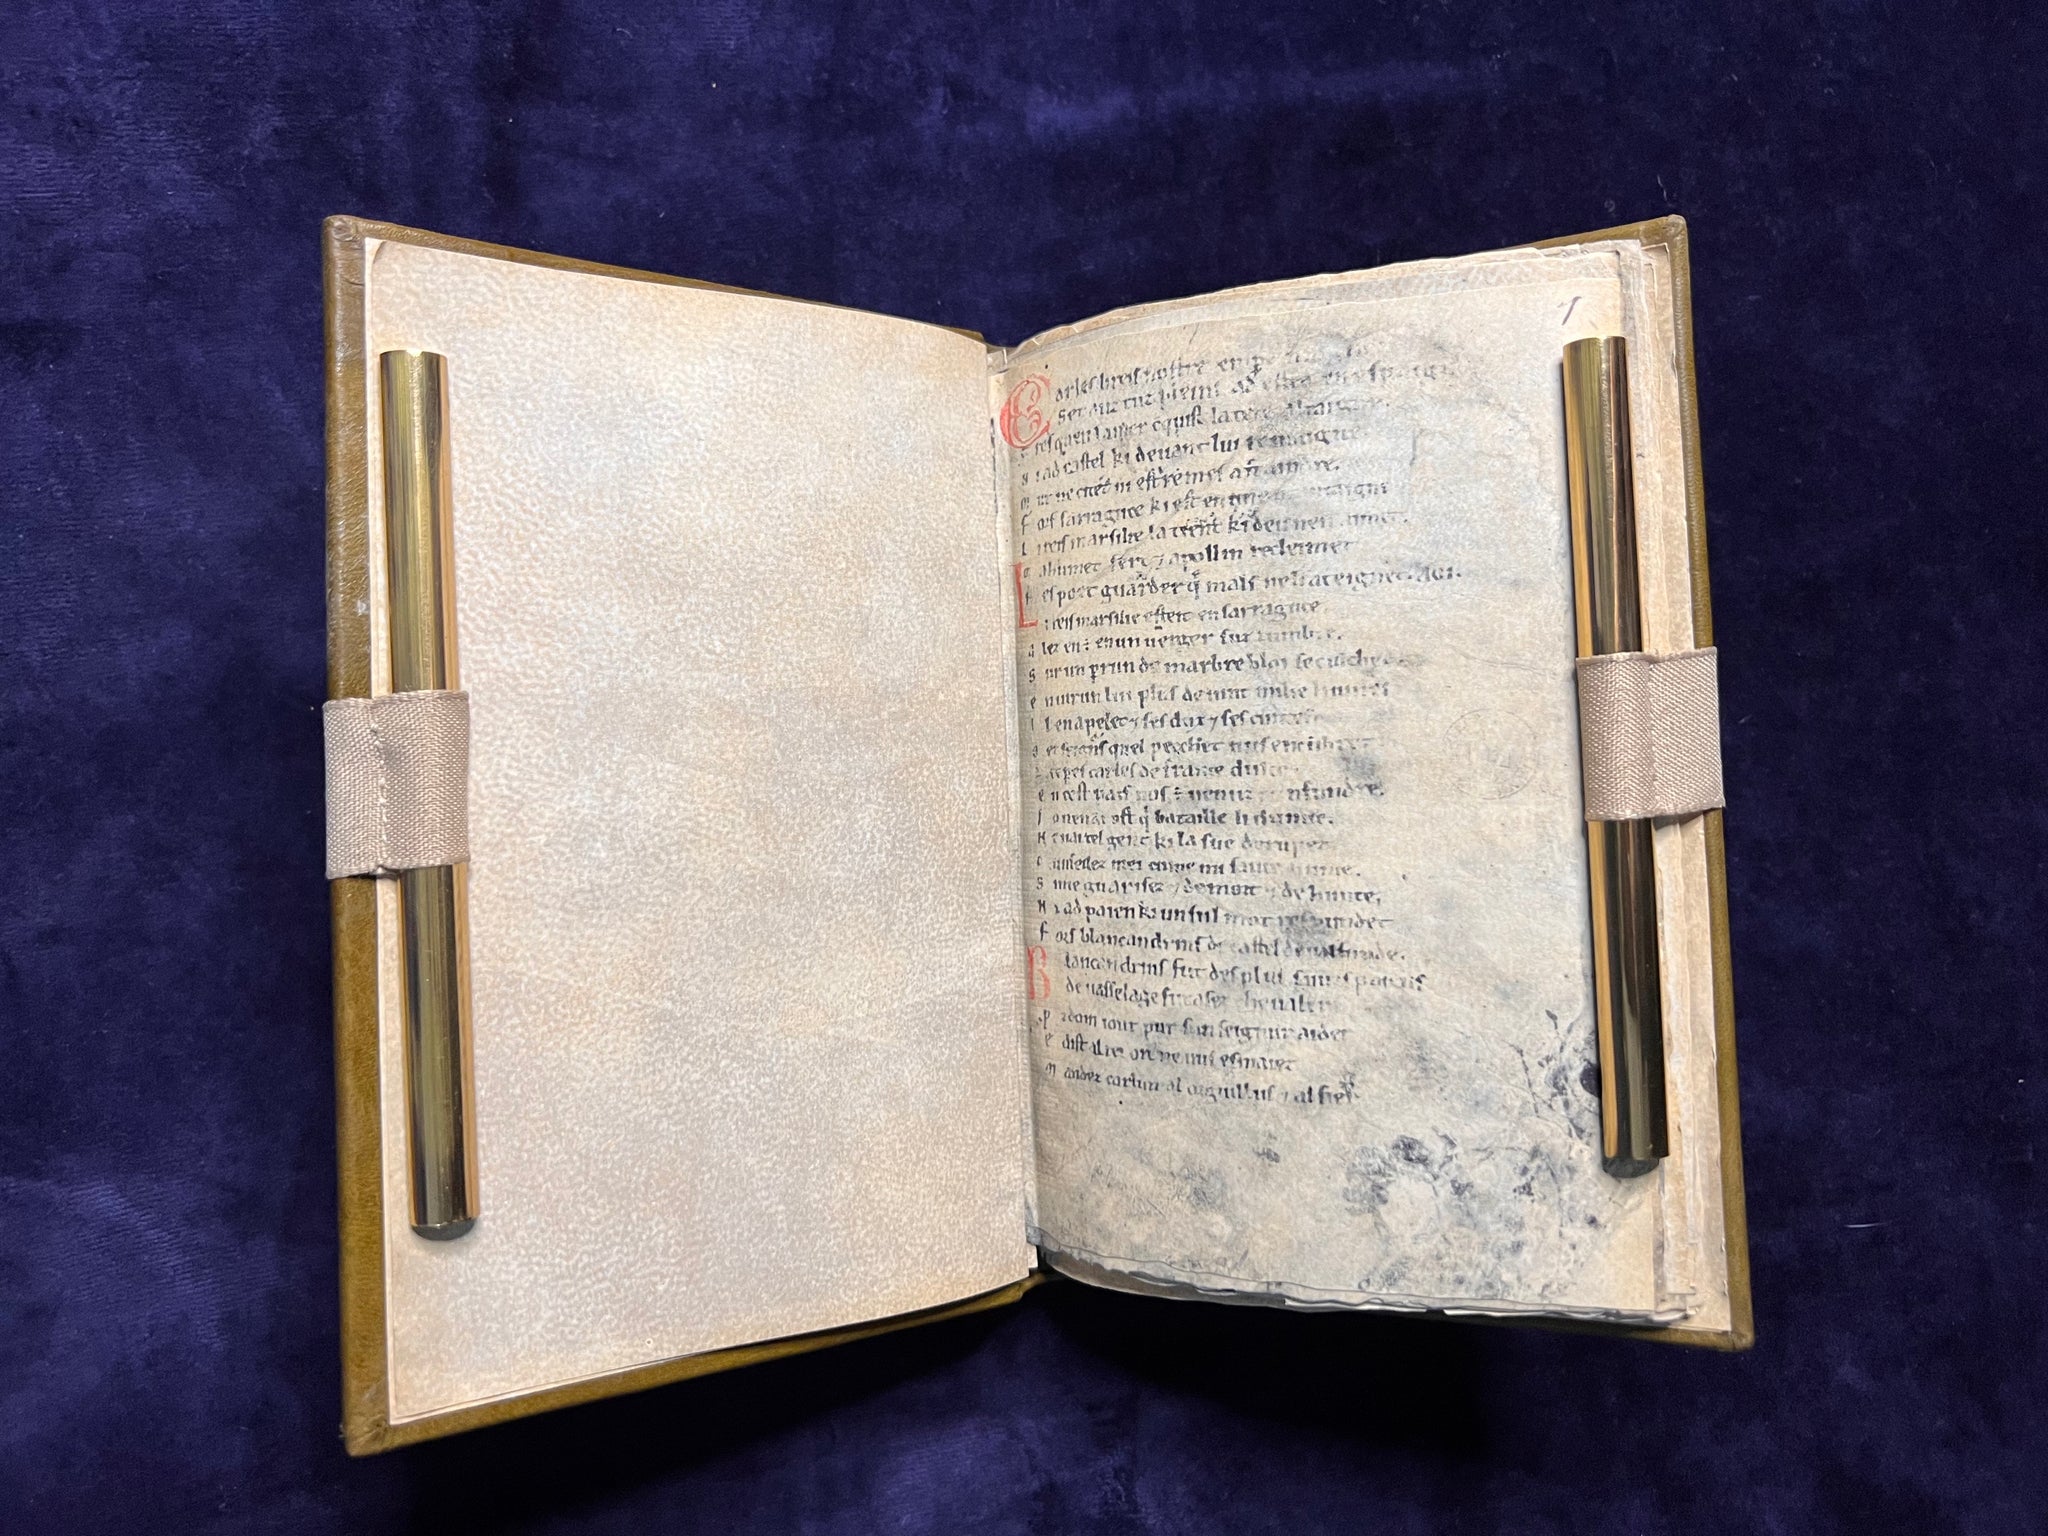 1
Carles li reis nostre emp
Set anz tuz pleins ad estet en espaigne
resquen la mer cquist la tere altaigne.
N i ad castel ki devant lui remaigne.
M ur ne citet ni est remes a fraindre.
f ors sarraguce ki est en une muntaigne
L i reis marsilie la tient ki deu nen aimet.
m ahumet sert ⁊ apollin recleimet
N es poet guarder q̃ mals ne l ateignet. AOI.
L i reis marsilie esteit en sarraguce
a lez en est en un verger suz lumbre.
S ur un perrun de marbre bloi se culchet
e nvirun lui plus de vint milie humes
I l en apelet ⁊ ses dux ⁊ ses cuntes
o ez seignurs quel pecchet nus encumbret
li emper carles de france dulce
e n cest pais nus est venuz cunfundre.
J o nen ai ost q̃ bataille li dunne.
N en ai tel gent ki la sue derumpet
c unseilez mei cume mi saive hume.
S i me guarisez ⁊ de mort ⁊ de hunte.
N i ad paien ki un sul mot respundet
f ors blancandrins de castel de valfunde.
B lancandrins fut des plus saives paiens
de vasselage fut asez chevaler
P rodom i out pur sun seignur aider
e dist al rei or ne vus esmaiez
m andez carlun al orguillus ⁊ al fier